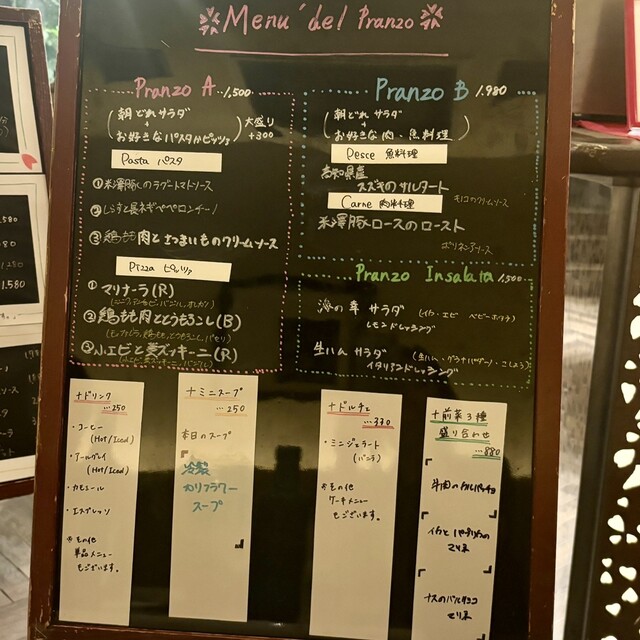 Menu' del Pranzo
Pranzo A 1,500
朝どれサラダ
+
お好きなパスタorピッツァ
大盛り
+300
Pasta パスタ
①米澤豚のラグートマトソース
②しらすと長ネギペペロンチーノ
③鶏もも肉とさつまいものクリームソース
Pizza ピッツァ
①マリナーラ(R)
②鶏もも肉ととうもろこし(B)
③小エビと姜ズッキーニ(R)
Pranzo B 1,980
朝どれサラダ
+
お好きな肉・魚料理
Pesce 魚料理
スズキのソルタート
キノコのクリームソース
Carne 肉料理
米澤豚ロースのロースト
Pranzo Insalata 1,500
海の幸サラダ (イカ・エビ ベビーホタテ)
レモンドレッシング
生ハムサラダ (生ハム・グラナパダーノ・こしょう)
イタリアンドレッシング
+ドリンク
...250
・コーヒー
(Hot/Iced)
・アールグレイ
(Hot/Iced)
・カモミール
・エスプレッソ
※その他
単品メニュー
もございます。
+ミニスープ
...250
本日のスープ
冷製
カリフラワー
スープ
+ドルチェ
...330
・ミニジェラート
(バニラ)
※その他
ケーキメニュー
もございます。
+前菜3種
盛り合わせ
...880
牛肉のカルパッチョ
イカとパプリカの
マリネ
ナスのバルサミコ
マリネ